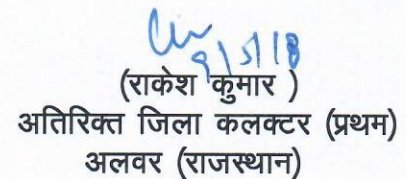 9/5/18
(राकेश कुमार )
अतिरिक्त जिला कलक्टर (प्रथम)
अलवर (राजस्थान)